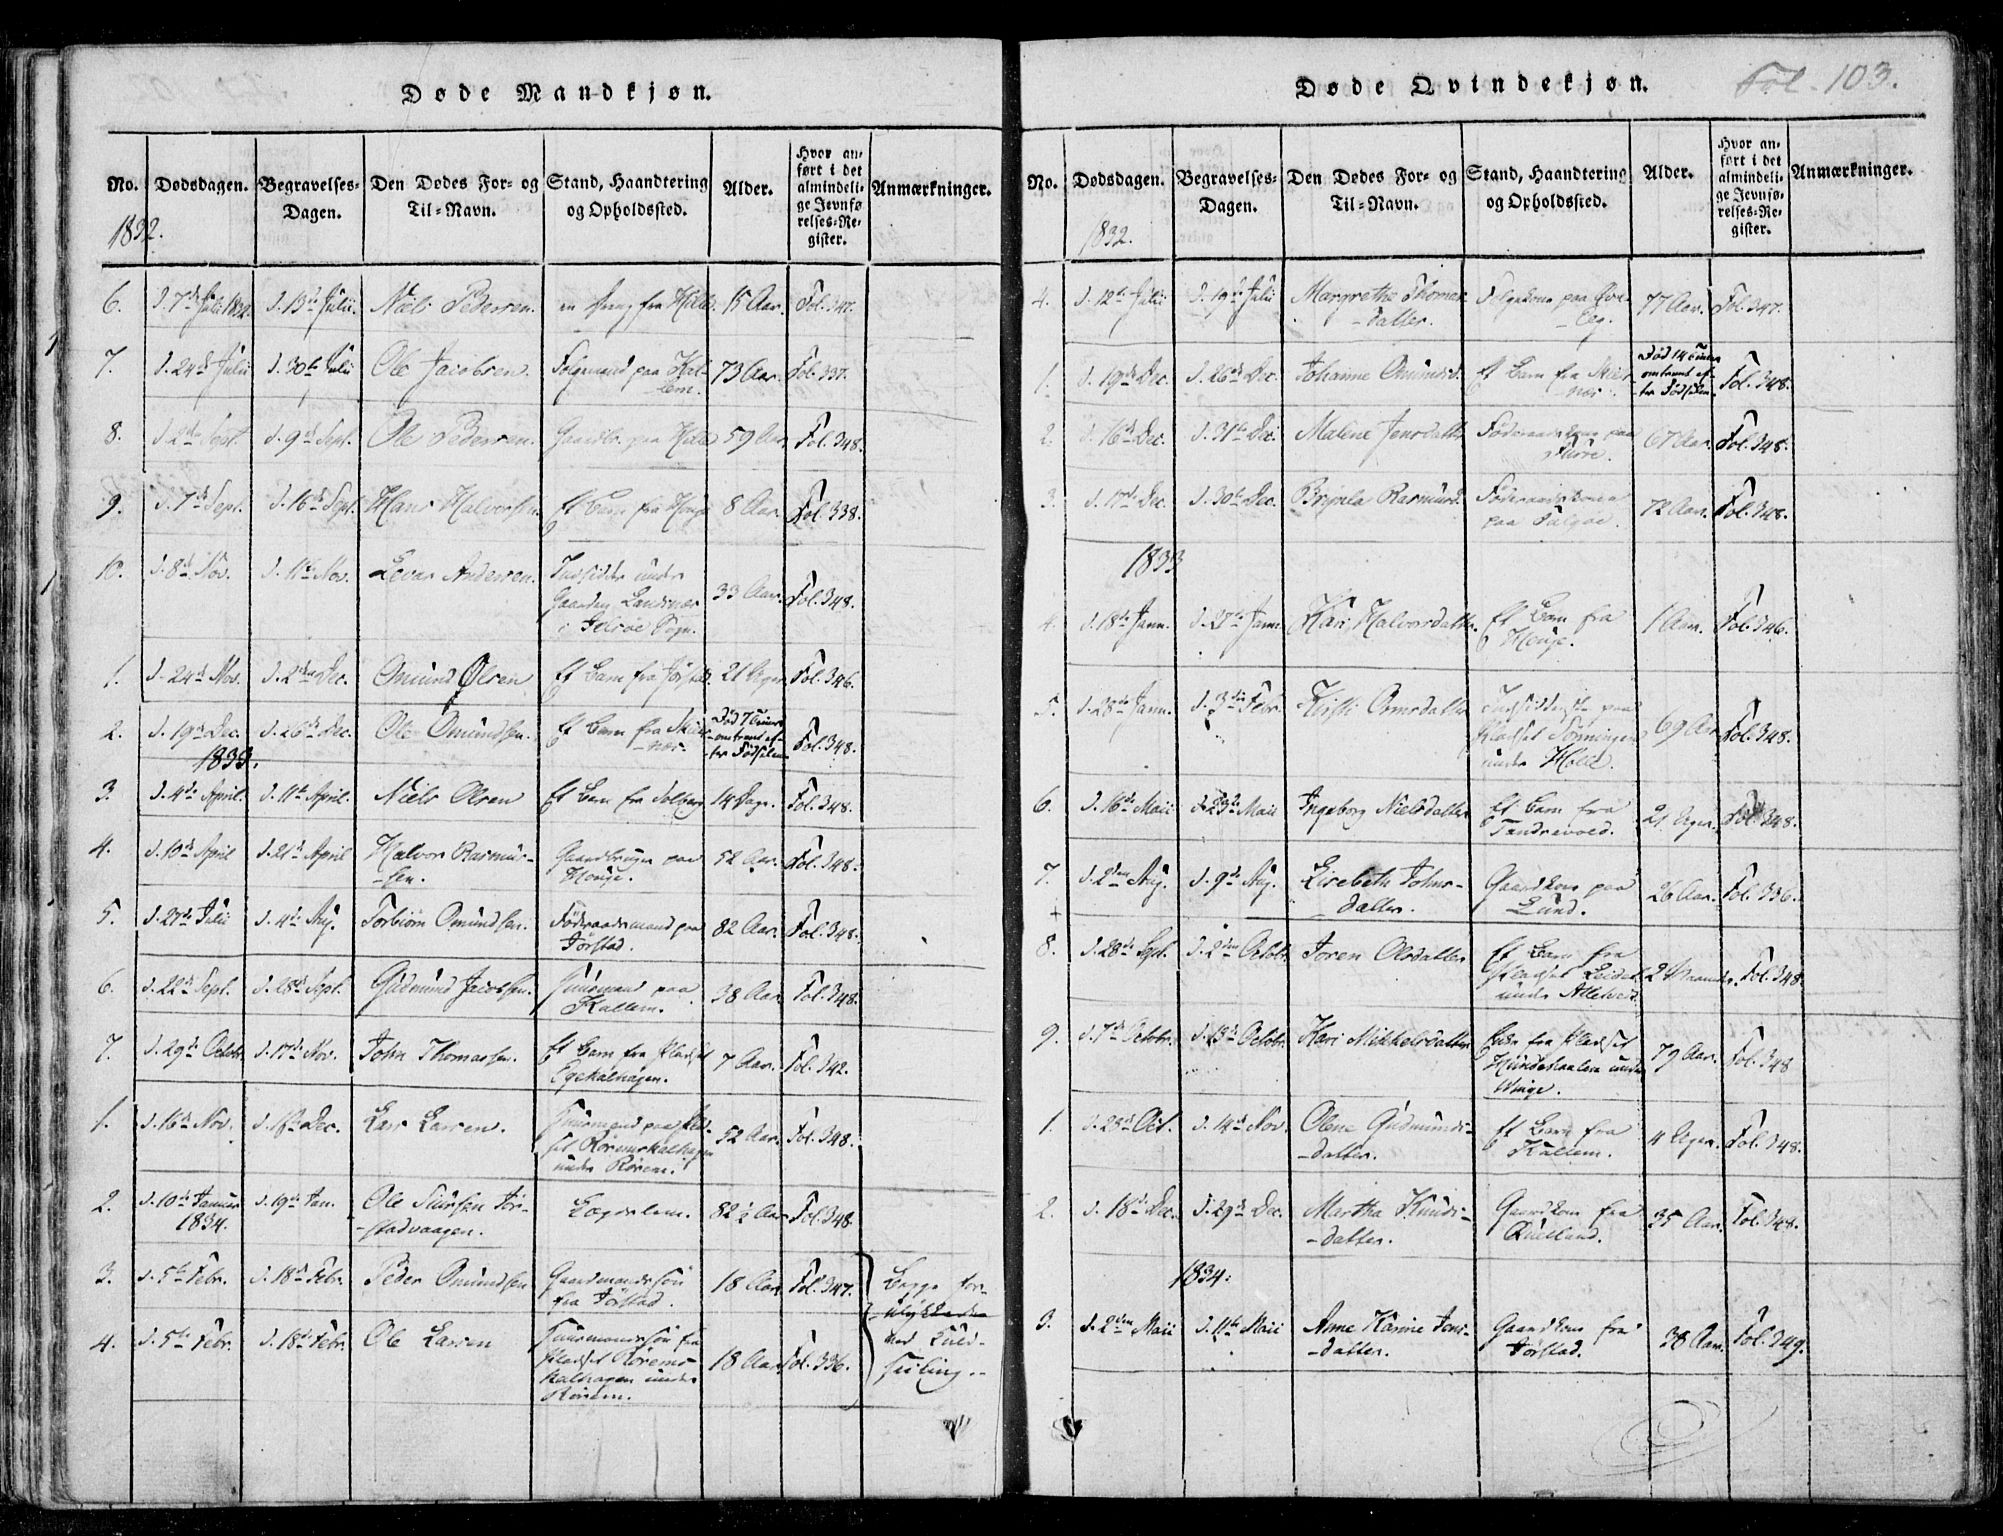 Døde Mandkjøn.
No. Dødsdagen. Begravelses-Dagen. Den Dødes For- og Til-Navn. Stand, Haandtering og Opholdssted. Alder. Hvor anført i det almindelige Jevnførelses-Register. Anmærkninger.
1832.
6. d. 7de Julii 1832. d. 13de Julii. Niels Pedersen. en fra Hilde 15 Aar. Fol. 347.
7. d. 24de Julii d. 30te Julii Ole Jacobsen. Folgemand paa Kallem. 73 Aar. Fol. 337.
8. d. 2den Sept. d. 9de Sept. Ole Pedersen. Gaardbr. paa Hilde 59 Aar Fol. 348.
9. d. 7de Sept. d. 16de Sept. Hans Halvorsen. Et Barn fra Houge 8 Aar. Fol. 338.
10. d. 8de Nov. d. 11te Nov. Levar Andersen. Indsidder under
Gaarden Landsnæs
i Sogn. 33 Aar. Fol. 348.
1. d. 24de Nov. d. 2den Dec. Omund Olsen Et Barn fra Jørstad. 21 Uger Fol. 346.
2. d. 19de Dec. d. 26de Dec. Ole Omundsen. Et Barn fra Død 7 Timer
omtrent ef-
ter Fødselen Fol. 348.
1833.
3. d. 4de April. d. 11te April. Niels Olsen Et Barn fra Solberg 14 Dage. Fol. 348.
4. d. 13de April d. 21de April Halvor Rasmus-
sen. Gaardbruger paa
Houge. 52 Aar. Fol. 348.
5. d. 27de Julii d. 4de Aug. Torbiørn Omundsen. Føderaadsmand paa
Jørstad. 82 Aar. Fol. 348.
6. d. 22de Sept. d. 28de Sept. Gudmund Jacobsen. Huusmand paa
Kallem. 38 Aar Fol. 348.
7. d. 29de Octobr. d. 17de Nov. John Thomassen. Et Barn fra Pladset
Egekalhagen. 7 Aar. Fol. 342.
1. d. 16de Nov. d. 1ste Dec. Lars Larsen. Huusmand paa Plad-
set Rørems Kalhagen
under Rørem. 52 Aar. Fol. 348.
2. d. 10de Januar
1834. d. 19de Jan. Ole Siursen Jør-
stadvaagen. Lægdslem. 82 ½ Aar Fol. 348
3. d. 5te Febr. d. 18de Febr. Peder Omundsen Gaardmandssøn
fra Jørstad. 18 Aar Fol. 347. Begge for-
ulykkede
ved Kuld-
seiling.
4. d. 5te Febr. d. 18de Febr. Ole Larsen Huusmandssøn fra
Pladset Rørems
Kalhagen under
Rørem. 18 Aar Fol. 336.
Døde Qvindekjøn.
Fol. 103.
No. Dødsdagen. Begravelses-Dagen. Den Dødes For- og Til-Navn. Stand, Haandtering og Opholdssted. Alder. Hvor anført i det almindelige Jevnførelses-Register. Anmærkninger.
1832.
4. d. 12te Julii d. 19de Julii Margrethe Thomas-
datter. Folgekone paa 77 Aar. Fol. 347.
1. d. 19de Dec. d. 26de Dec. Johanne Omundsd. Et Barn fra Død 14 Timer
omtrent ef-
ter Fødselen. Fol. 348.
2. d. 16de Dec. d. 31te Dec. Malene Jensdatter Føderaadskone paa 67 Aar. Fol. 348.
3. d. 17de Dec. d. 30te Dec. Brynla Rasmusd. Føderaadskone
paa Talgøe. 72 Aar. Fol. 348.
1833
4. d. 18de Jann. d. 27de Jann. Kari Halvorsdatter. Et Barn fra
Houge. 1 Aar. Fol. 346.
5. d. 28de Jann. d. 3die Febr. Kisti Ormsdatter paa
Pladset
under 69 Aar Fol. 348.
6. d. 16de Maii d. 23de Maii Ingeborg Nielsdatter Et Barn fra
Tandrevold. 21 Uger. Fol. 348.
7. d. 2den Aug. d. 9de Aug. Lisebeth Johns-
datter. Gaardkone paa
Lund. 26 Aar. Fol. 336.
8. d. 28de Sept. d. 2den Octobr. Joren Olsdatter Et Barn fra
Pladset
under 2 Maaneder. Fol. 348
9. d. 7de Octobr. d. 13de Octobr. Kari Mikkelsdatter fra Pladset
under
Winge. 79 Aar. Fol. 348
1. d. 23de Oct. d. 14de Nov. Olene Gudmunds-
datter. Et Barn fra
Kallem. 11 Uger. Fol. 348.
2. d. 18de Dec. d. 29de Dec. Martha Knuds-
datter. Gaardkone fra
Qualland. 35 Aar. Fol. 348.
1834.
3. d. 2den Maii d. 11te Maii Anne Karine Jens-
datter. Gaardkone fra
Jørstad. 38 Aar. Fol. 349.